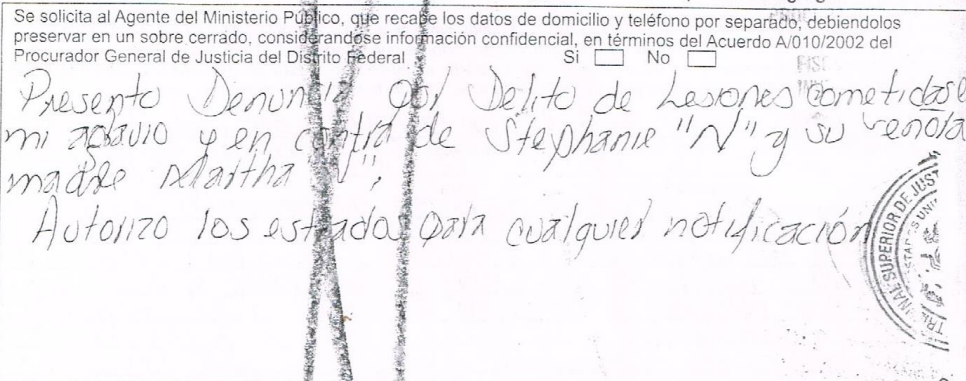 Se solicita al Agente del Ministerio Público, que recabe los datos de domicilio y teléfono por separado, debiendolos
preservar en un sobre cerrado, considerandose información confidencial, en términos del Acuerdo A/010/2002 del
Procurador General de Justicia del Distrito Federal Si No
Presento Denuncia por Delito de Lesiones cometidas e
mi agravio y en contra de Stephanie "N" y su señora
madre Martha "N",
Autorizo los estrados para cualquier notificación
TRIBUNAL SUPERIOR DE JUST